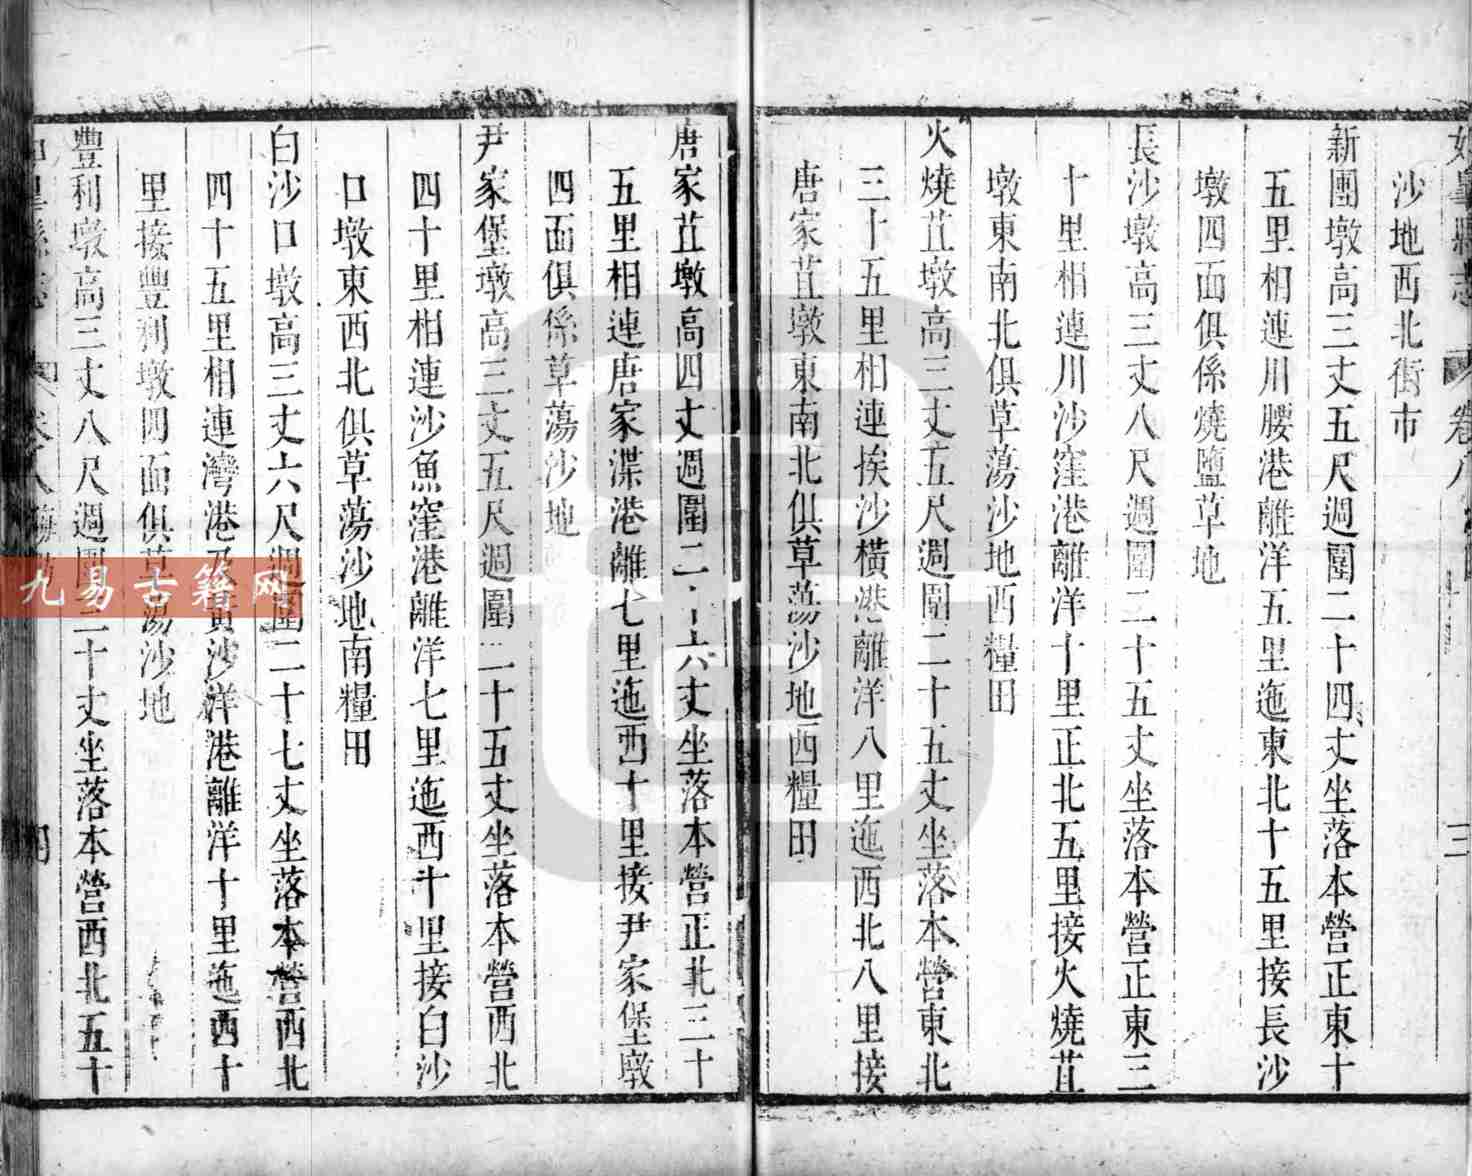 沙地西北街市
新團墩高三丈五尺週圍二十四丈坐落本營正東十
五里相連川腰港離洋五里迤東北十五里接長沙
墩四面俱係燒鹽草地
長沙墩高三丈八尺週圍二十五丈坐落本營正東三
十里相連川沙窪港離洋十里正北五里接火燒苴
墩東南北俱草蕩沙地西糧田
火燒苴墩高三丈五尺週圍二十五丈坐落本營東北
三十五里相連挨沙橫港離洋八里迤西北八里接
唐家苴墩東南北俱草蕩沙地西糧田
唐家苴墩高四丈週圍二十六丈坐落本營正北三十
五里相連唐家渫港離七里迤西十里接尹家堡墩
四面俱係草蕩沙地
尹家堡墩高三丈五尺週圍二十五丈坐落本營西北
四十里相連沙魚窪港離洋七里迤西十里接白沙
口墩東西北俱草蕩沙地南糧田
白沙口墩高三丈六尺週圍二十七丈坐落本營西北
四十五里相連灣港及黃沙洋港離洋十里迤西十
里接豐利墩四面俱草蕩沙地
豐利墩高三丈八尺週圍二十丈坐落本營西北五十
九易古籍网